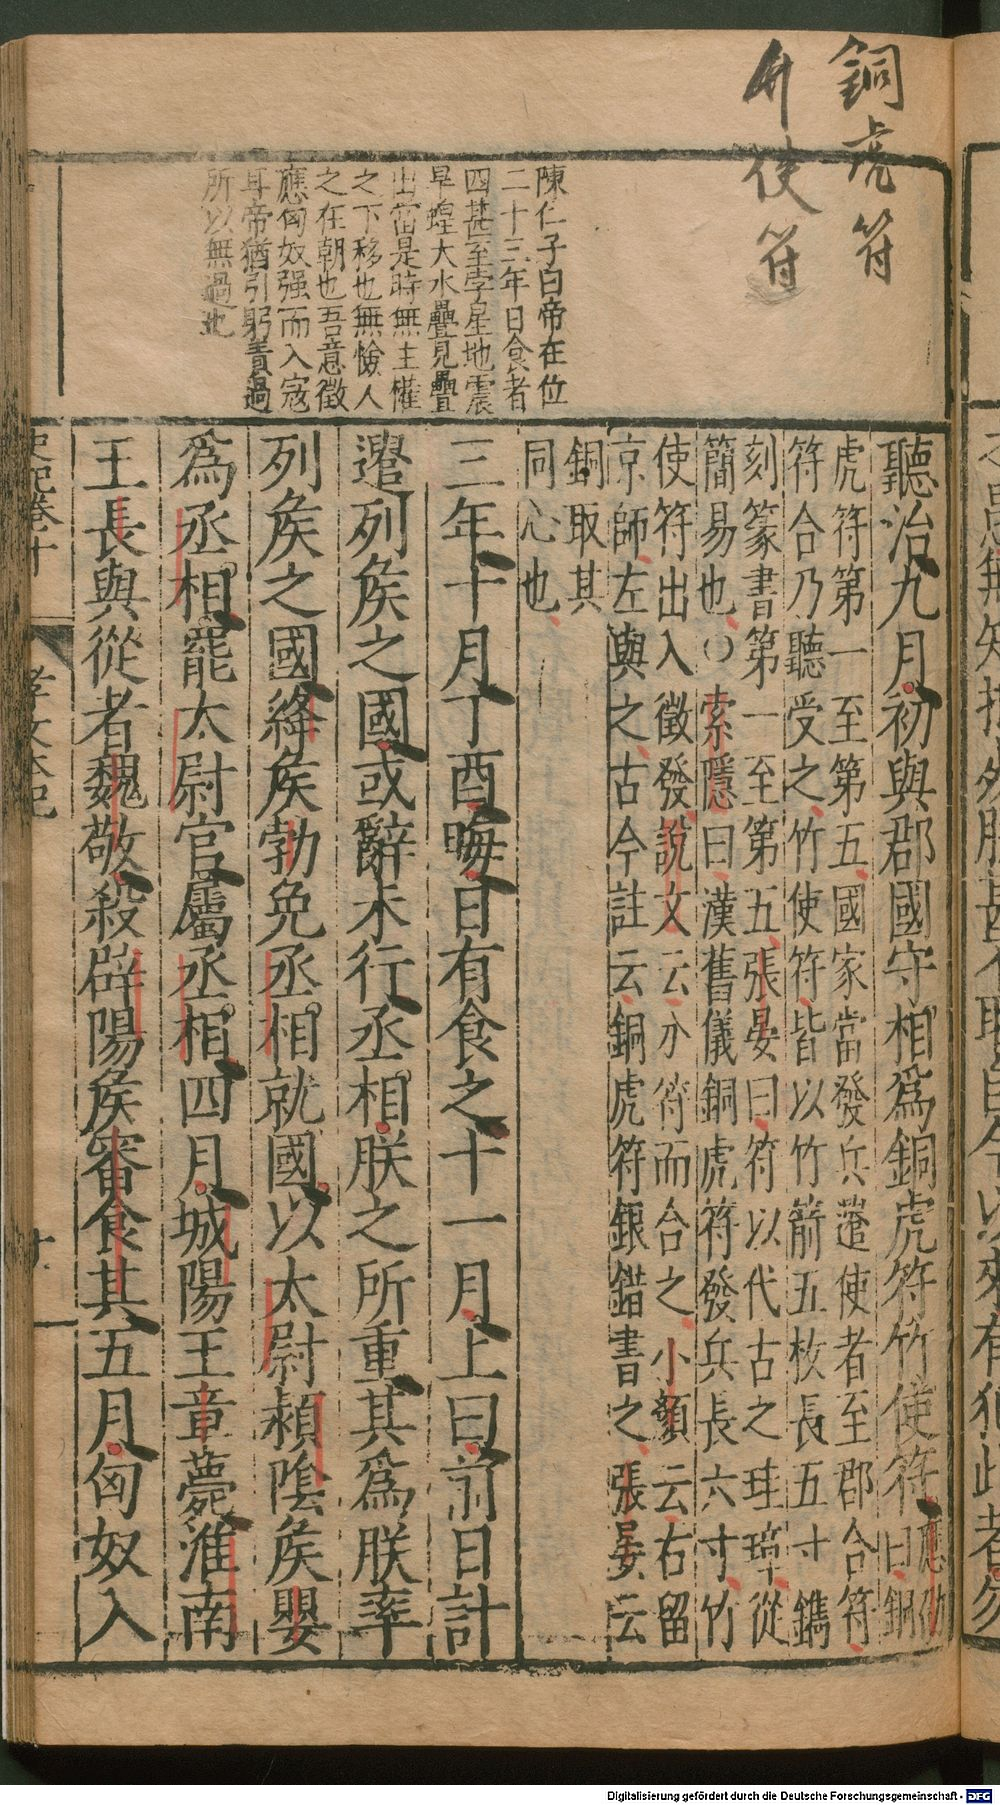 銅虎符
竹使符
陳仁子曰帝在位
二十三年日食者
四甚至孛星地震
旱蝗大水疊見疊
出當是時無主權
之下移也無憸人
之在朝也吾意徵
應匈奴强而入寇
耳帝猶引躬責過
所以無過也
聽治九月初與郡國守相爲銅虎符竹使符應劭曰銅
虎符第一至第五國家當發兵遣使者至郡合符
符合乃聽受之竹使符皆以竹箭五枚長五寸鐫
刻篆書第一至第五張晏曰符以代古之珪璋從
簡易也○索隱曰漢舊儀銅虎符發兵長六寸竹
使符出入徵發說文云分符而合之小顏云右留
京師左與之古今註云銅虎符銀錯書之張晏云
銅取其
同心也
三年十月丁酉晦日有食之十一月上曰前日計
遣列矦之國或辭未行丞相朕之所重其爲朕率
列矦之國絳矦勃免丞相就國以太尉潁隂矦嬰
爲丞相罷太尉官屬丞相四月城陽王章薨淮南
王長與從者魏敬殺辟陽矦審食其五月匈奴入
史記卷十
孝文本紀
十
Digitalisierung gefördert durch die Deutsche Forschungsgemeinschaft - DFG